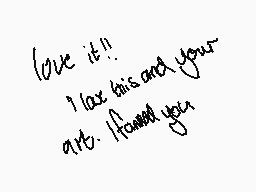 love it!!
I lov this and your
art. I fanned you